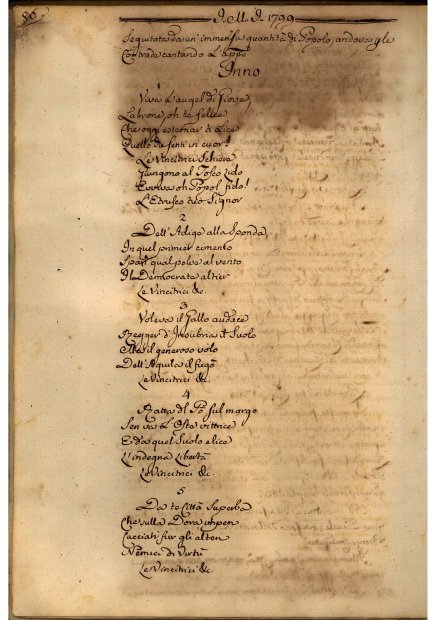 86.
J. M. J. 1799
Seguitata da un' immensa quantità di Popolo, andava p le
Contrade cantando l'app.o
Inno
Viva l'augel di Giove,
Labrone, oh te felice
Che oggi esternar ti lice
Quello che senti in cuor!
Le Vincitrici Schiere
Giungono al Tosco lido
Evviva oh Popol fido!
L'Etrusco tuo Signor
2
Dell'Adige alla Sponda,
In quel primier cimento
Sparì qual polve al vento
Il Democrata altier
Le Vincitrici &c.
3
Voleva il Gallo audace
Regger d'Insubria il Suolo
Ma il generoso volo
Dell'Aquila il fugò
Le Vincitrici &c.
4
Ratta del Pò sul margo
Sen va l'Oste vittrice
E da quel Suolo elice
L'indegna Libertà
Le Vincitrici &c.
5
Da te Città Superba
Che sulla Dora imperi
Cacciati fur gli alteri
Nemici di Virtù
Le Vincitrici &c.